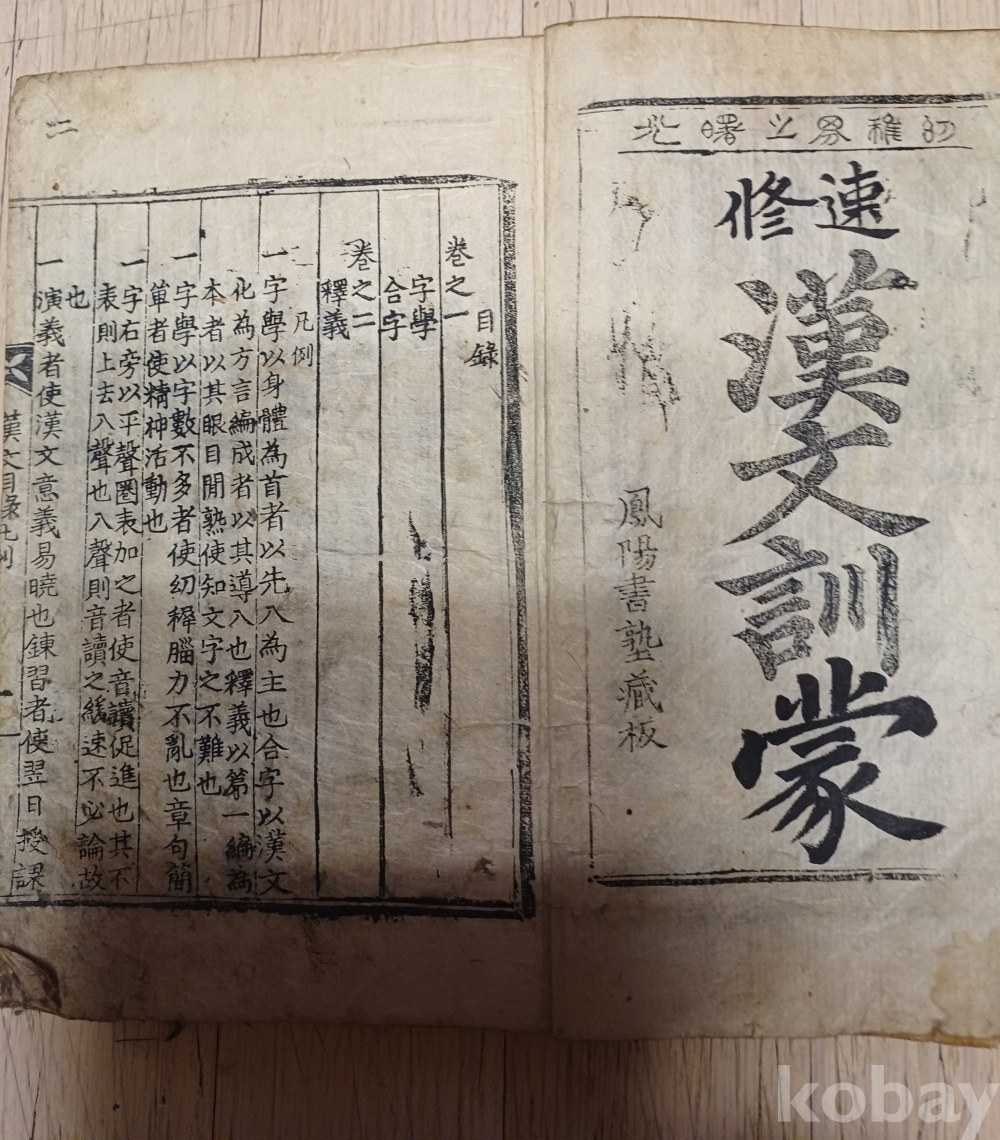 幼稚界之曙光
速修
漢文訓蒙
鳳陽書塾藏板
目錄
卷之一
字學
合字
卷之二
釋義
凡例
一字學以身體為首者以先入為主也合字以漢文
化為方言編成者以其導入也釋義以第一編為
本者以其眼目閒熟使知文字之不難也
一字學以字數不多者使幼穉腦力不亂也章句簡
單者使精神活動也
一字右旁以平聲圈表加之者使音讀促進也其不
表則上去入聲也入聲則音讀之緩速不必論故
也
一演義者使漢文意義易曉也鍊習者使翌日授課
漢文目錄凡例
一
二
kobay